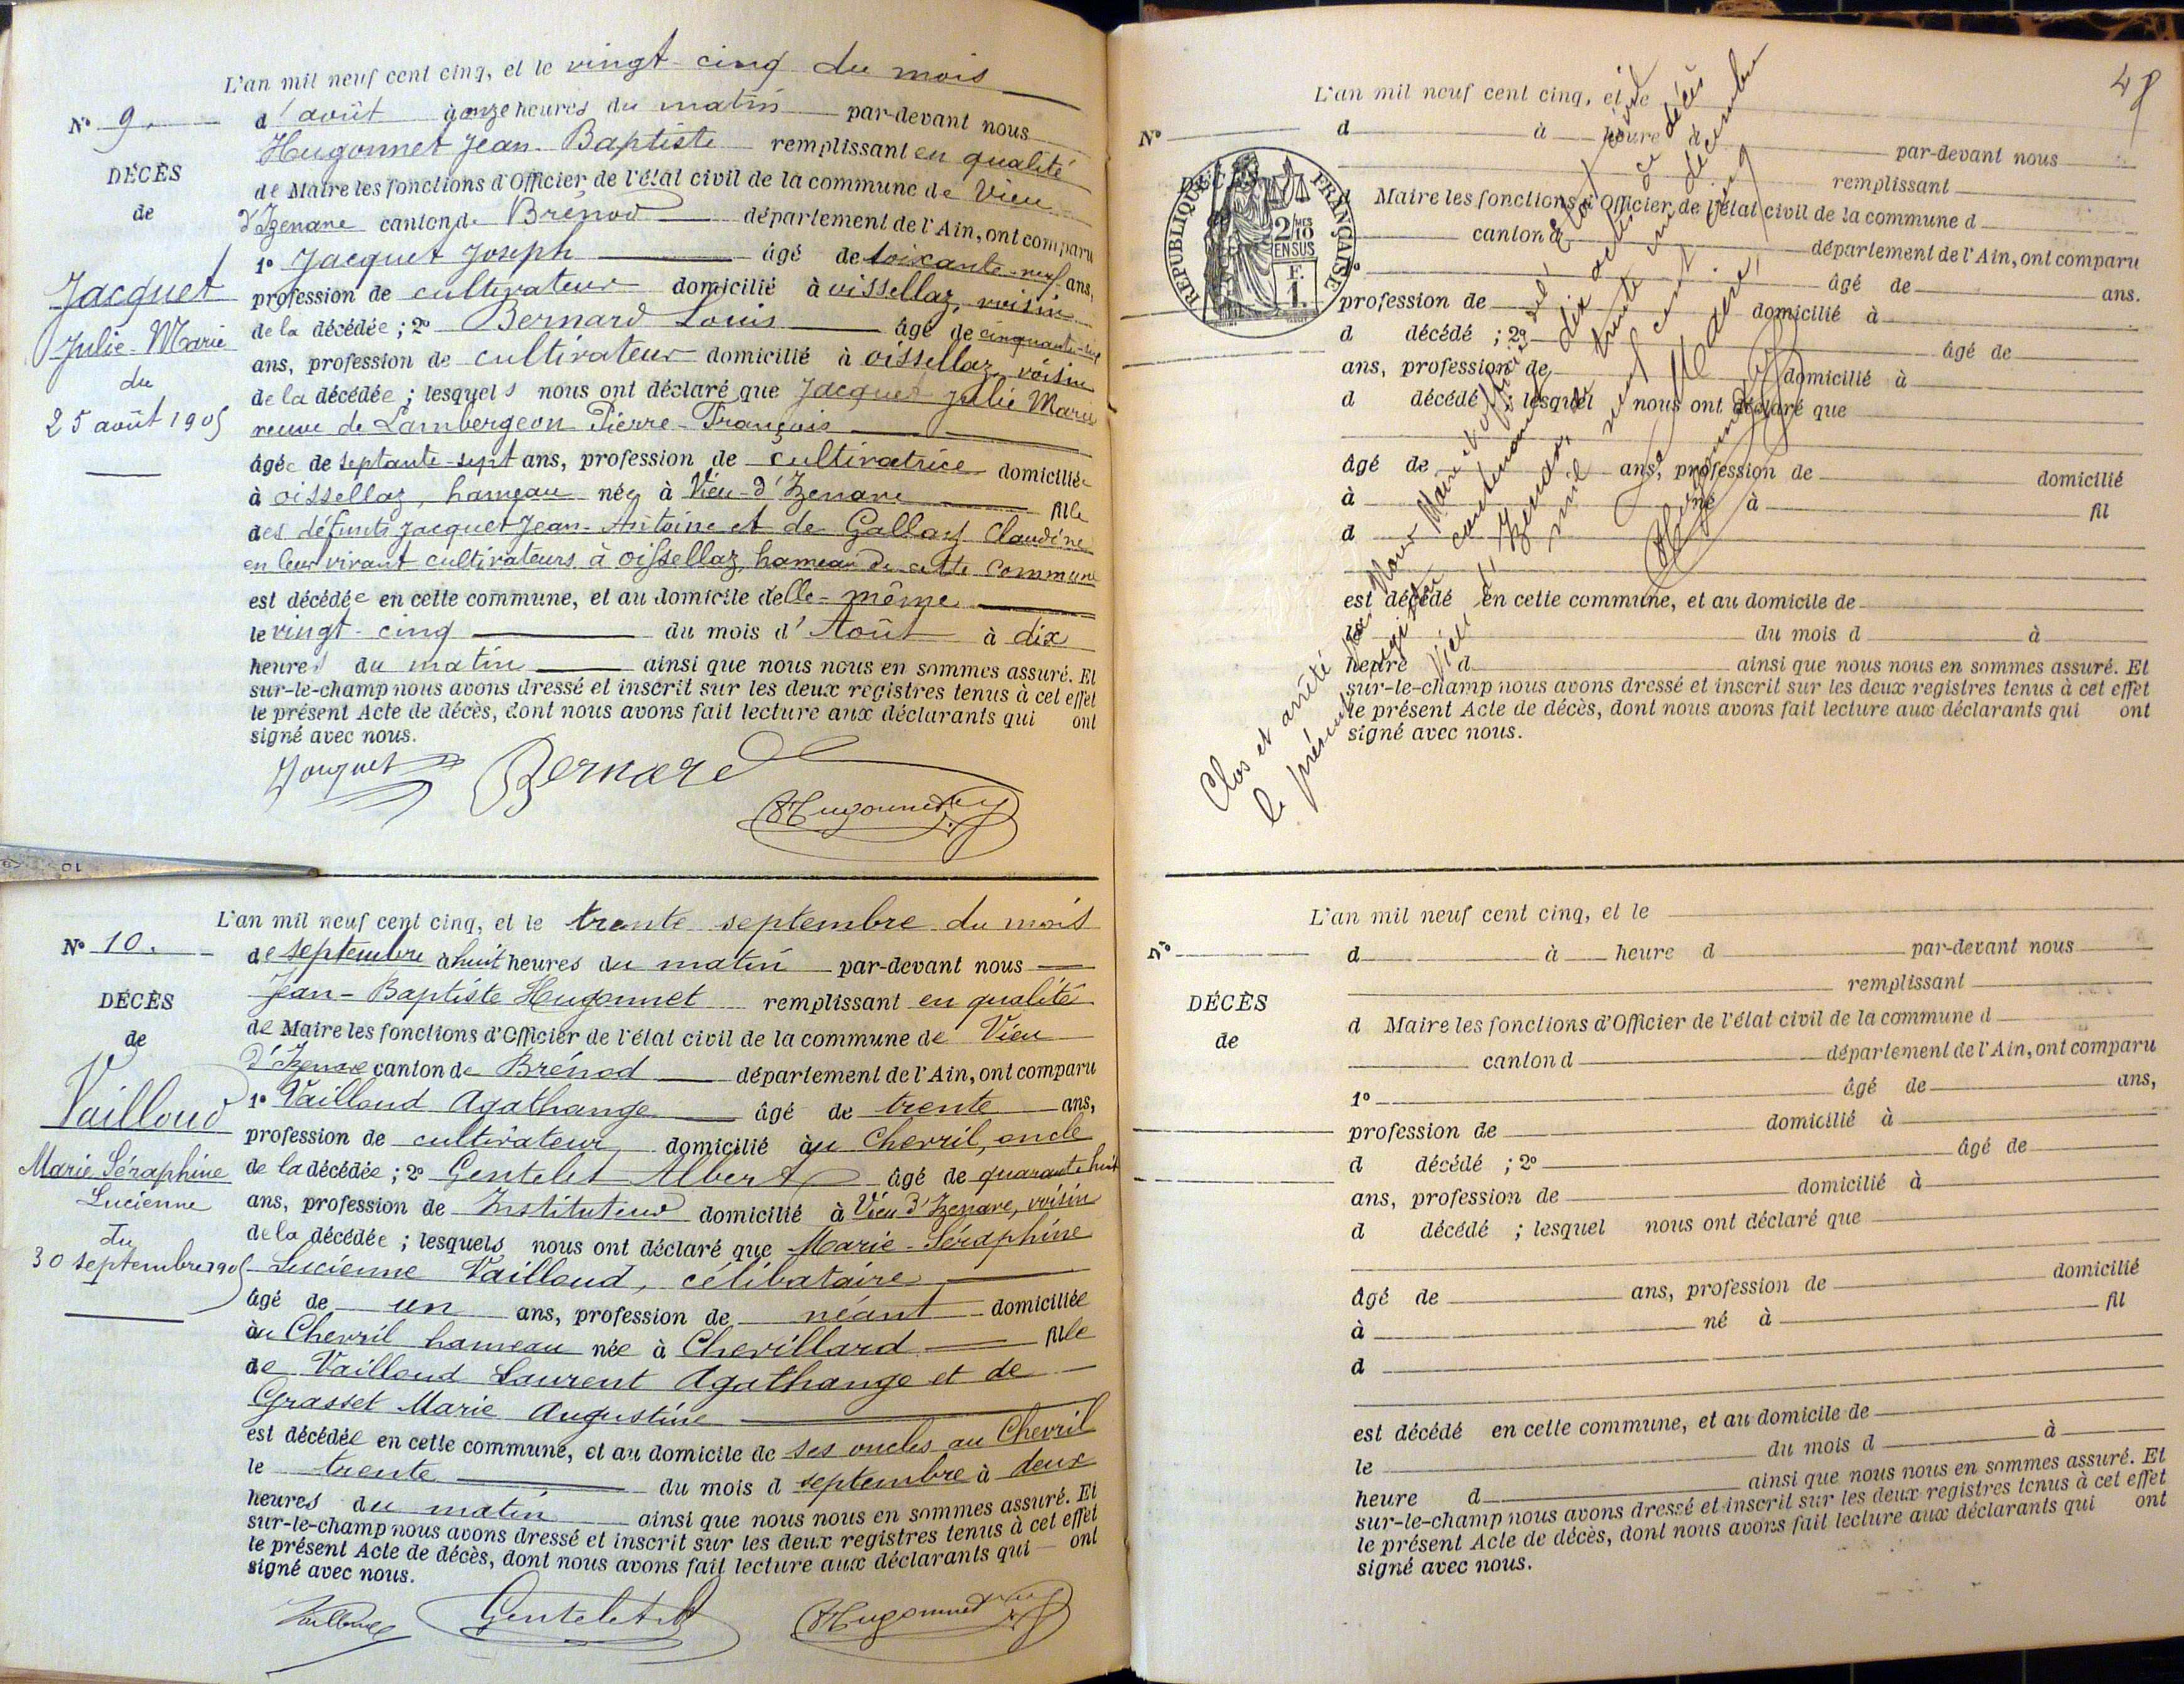 L'an mil neuf cent cinq, et le vingt-cinq du mois
N° 9.
d'août à onze heures du matin par-devant nous
Hugonnet Jean-Baptiste remplissant en qualité
DÉCÈS
de Maire les fonctions d'Officier de l'état civil de la commune de Vieu
de
d'Izenave canton de Brénod département de l'Ain, ont comparu
1° Jacquet Joseph âgé de soixante-neuf ans,
Jacquet
profession de cultivateur domicilié à oissellaz, voisin
Julie-Marie
de la décédée ; 2° Bernard Louis âgé de cinquante-
du
ans, profession de cultivateur domicilié à oissellaz, voisin
25 août 1905
de la décédée ; lesquels nous ont déclaré que Jacquet Julie Marie
veuve de Lambergeon Pierre-François
âgée de septante-sept ans, profession de cultivatrice domiciliée
à oissellaz, hameau née à Vieu-d'Izenave fille
des défunts Jacquet Jean-Antoine et de Galland Claudine
en leur vivant cultivateurs à oissellaz, hameau de cette commune
est décédée en cette commune, et au domicile d'elle-même
le vingt-cinq du mois d'Août à dix
heures du matin ainsi que nous nous en sommes assuré. Et
sur-le-champ nous avons dressé et inscrit sur les deux registres tenus à cet effet
le présent Acte de décès, dont nous avons fait lecture aux déclarants qui ont
signé avec nous.
Jacquet Bernard
Hugonnet
10
L'an mil neuf cent cinq, et le trente septembre du mois
N° 10.
de septembre à huit heures du matin par-devant nous
Jean-Baptiste Hugonnet remplissant en qualité
DÉCÈS
de Maire les fonctions d'Officier de l'état civil de la commune de Vieu
de
d'Izenave canton de Brénod département de l'Ain, ont comparu
Vailloud
1° Vailloud Agathange âgé de trente ans,
profession de cultivateur domicilié au Chevril, oncle
Marie Séraphine
de la décédée ; 2° Gentelet Albert âgé de quarante huit
Lucienne
ans, profession de Instituteur domicilié à Vieu d'Izenave, voisin
du
de la décédée ; lesquels nous ont déclaré que Marie-Séraphine
30 septembre 1905
Lucienne Vailloud, célibataire
âgé de un ans, profession de néant domiciliée
au Chevril hameau née à Chevillard fille
de Vailloud Laurent Agathange et de
Grasset Marie Augustine
est décédée en cette commune, et au domicile de ses oncles au Chevril
le trente du mois d septembre à deux
heures du matin ainsi que nous nous en sommes assuré. Et
sur-le-champ nous avons dressé et inscrit sur les deux registres tenus à cet effet
le présent Acte de décès, dont nous avons fait lecture aux déclarants qui ont
signé avec nous.
Vailloud Gentelet A Hugonnet
48
L'an mil neuf cent cinq, et le
N°
d à heure d par-devant nous
remplissant
d Maire les fonctions d'Officier de l'état civil de la commune d
canton d département de l'Ain, ont comparu
1° âgé de ans.
profession de domicilié à
d décédé ; 2° âgé de
ans, profession de domicilié à
d décédé lesquel nous ont déclaré que
âgé de ans, profession de domicilié
à né à fil
d
est décédé en cette commune, et au domicile de
le du mois d à
heure d ainsi que nous nous en sommes assuré. Et
sur-le-champ nous avons dressé et inscrit sur les deux registres tenus à cet effet
le présent Acte de décès, dont nous avons fait lecture aux déclarants qui ont
signé avec nous.
RÉPUBLIQUE FRANÇAISE
2/10
EN SUS
F.
1.
Clos et arrêté par Nous Maire et officier de l'état civil
le présent registre contenant dix actes de décès
Vieu d'Izenave, trente un décembre
mil neuf cent cinq
Le Maire,
Hugonnet
L'an mil neuf cent cinq, et le
N°
d à heure d par-devant nous
remplissant
DÉCÈS
d Maire les fonctions d'Officier de l'état civil de la commune d
de
canton d département de l'Ain, ont comparu
1° âgé de ans,
profession de domicilié à
d décédé ; 2° âgé de
ans, profession de domicilié à
d décédé ; lesquel nous ont déclaré que
âgé de ans, profession de domicilié
à né à fil
d
est décédé en cette commune, et au domicile de
le du mois d à
heure d ainsi que nous nous en sommes assuré. Et
sur-le-champ nous avons dressé et inscrit sur les deux registres tenus à cet effet
le présent Acte de décès, dont nous avons fait lecture aux déclarants qui ont
signé avec nous.